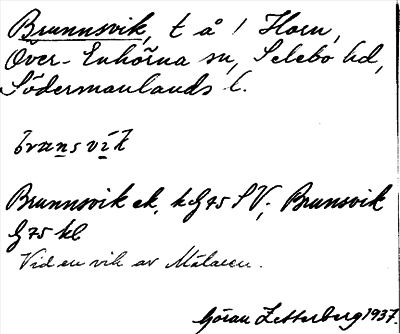 Brunnsvik, t å / Horn,
Över-Enhörna sn, Selebo hd,
Södermanlands l.
brunsvik
Brunnsvik ek. kG75 SV; Brunsvik
G75 kl
Vid en vik av Mälaren.
Göran Zetterberg 1937.